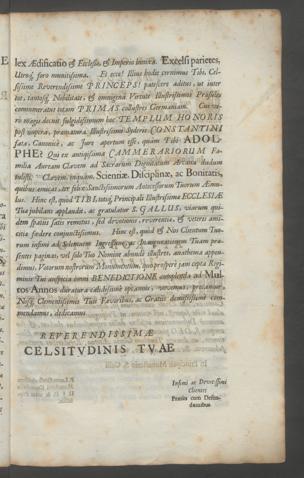 lex Ædificatio & Ecclesiæ, & Imperio binica. Excelsi parietes,
Utroq; foro munitissima. Et ecce! Illius hodie cernimus Tibi, Cel-
sissime Reverendissime PRINCEPS! patescere aditus, ut inter
tot, tantosq; Nobilitate, & omnigenâ Virtute Illustrissimos Præsules
connumeratus totam PRIMAS collustres Germaniam. Cui ve-
rò magis decuit fulgidissimum hoc TEMPLUM HONORIS
post
Canonicè, ac jure apertum esse, quàm Tibi ADOL-
PHE! Qui ex antiquissima CAMMERARIORUM Fa-
milia Auream Clavem ad Sacrarum Dignitatum Æraria dudum
Clavem, inquam, Scientiæ, Disciplinæ, ac Bonitatis,
quibus animas, ter felix Sanctissimorum Antecessorum Tuorum Æmu-
lus. Hinc est, quòd TIBI, tuiq; Principali Illustrissimæ ECCLESIÆ
Tuæ jubilans applaudit, ac gratulatur S. GALLUS, viarum qui-
dem spatiis satis remotus, sed devotione, reverentia, & veteris ami-
citiæ fœdere conjunctissimus. Hinc est, quòd & Nos Clientum Tuo-
rum infimi ad Solemnem Ingressum, ac Inaugurationem Tuam præ-
sentes paginas, vel solo Tuo Nomine abundè illustres,
dimus. Votorum nostrorum
minis Tui auspicia omni BENEDICTIONE ad Mul-
tos Annos duratura cælestibus optamus, vovemus, precamur,
Nosq; Clementissimis Tuis Favoribus, ac Gratiis demississimè com-
mendamus, dedicamus
REVERENDISSIMÆ
CELSITUDINIS TUAE
Infimi ac Devotissimi
Clientes
Præses cum Defen-
dentibus